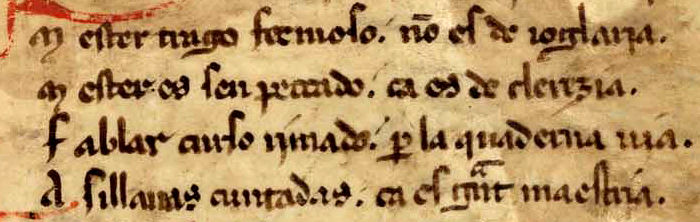 M ester trago fermoso. nõ es de ioglaria.
M ester es sen peccado. ca es de clerezia.
F ablar curso rimado. ꝑ la quaderna uia.
A sillauas cuntadas. ca es gᵃnt maestria.